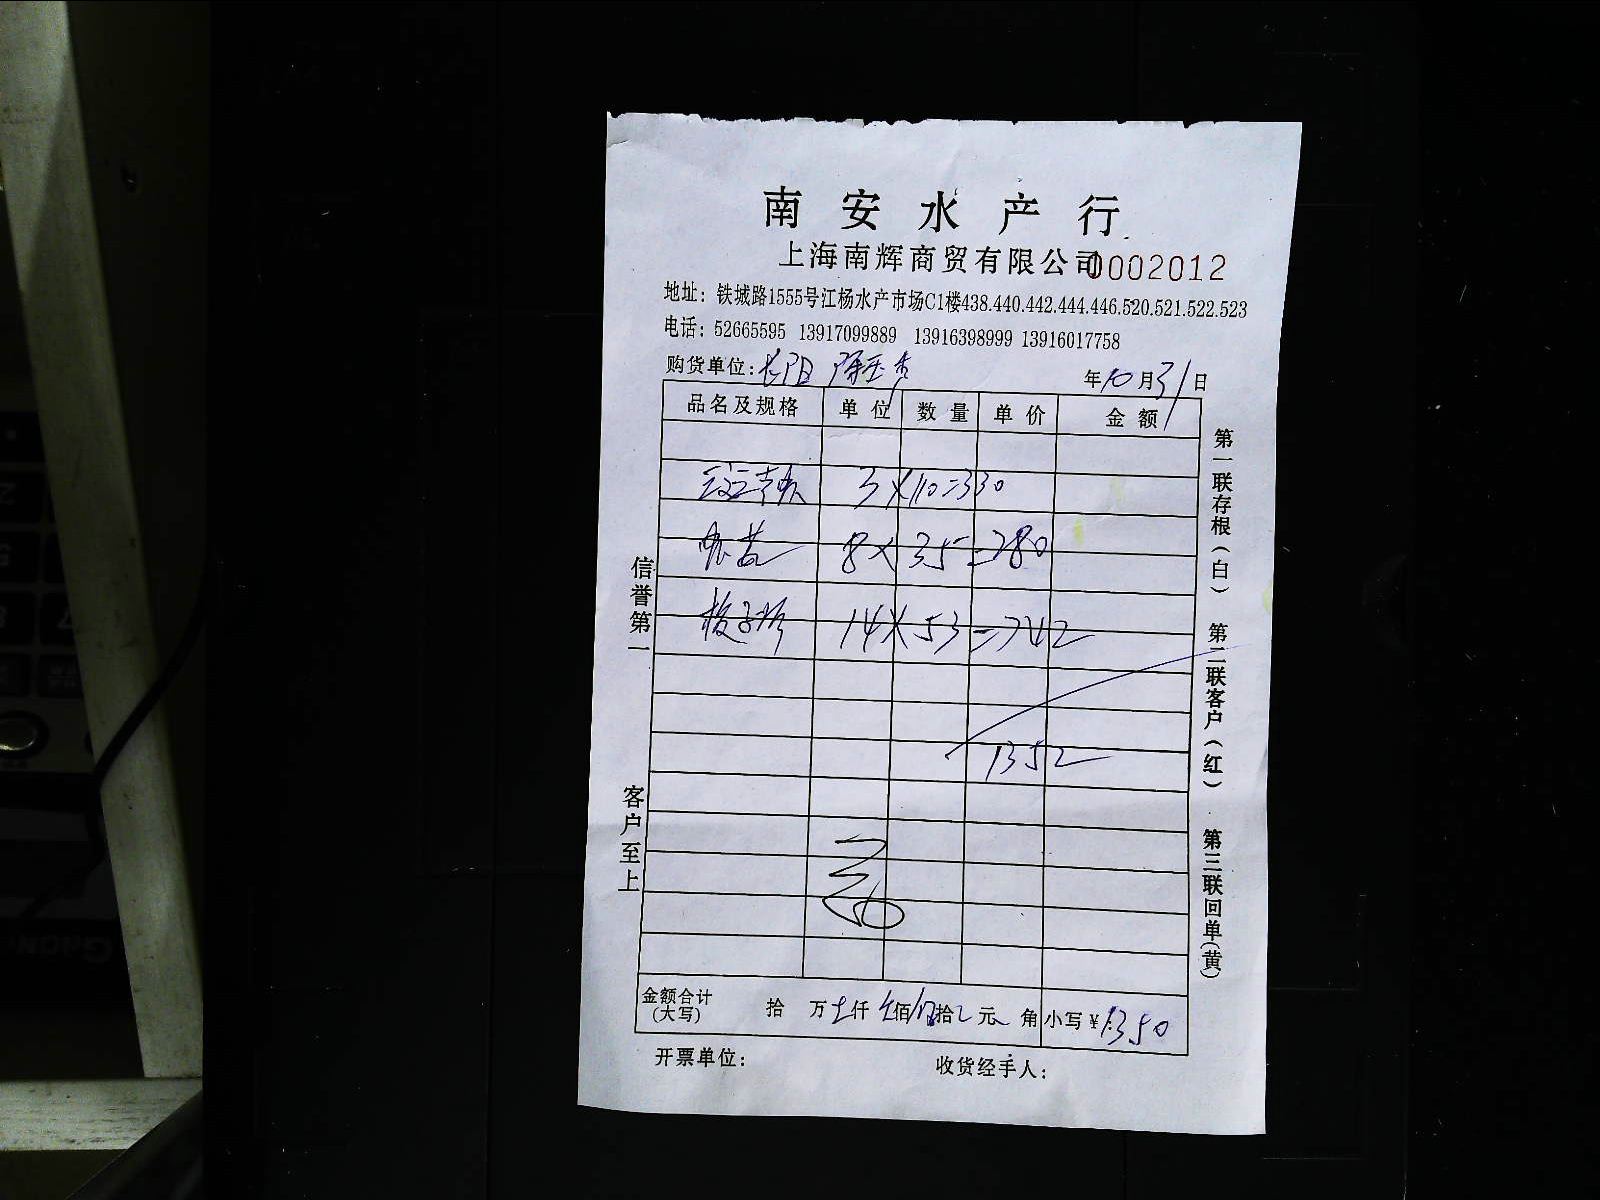 南安水产行
上海南辉商贸有限公司 0002012
地址：铁城路1555号江杨水产市场C1楼438.440.442.444.446.520.521.522.523
电话：52665595 13917099889 13916398999 13916017758
购货单位：长阳 年10月31日
品名及规格 单位 数量 单价 金额
3×110=330
8×35=280
14×53=742
1352
金额合计（大写） 拾 万 仟 佰 拾 元 角 小写￥1350
开票单位： 收货经手人：
信誉第一
客户至上
第一联存根（白）
第二联客户（红）
第三联回单（黄）